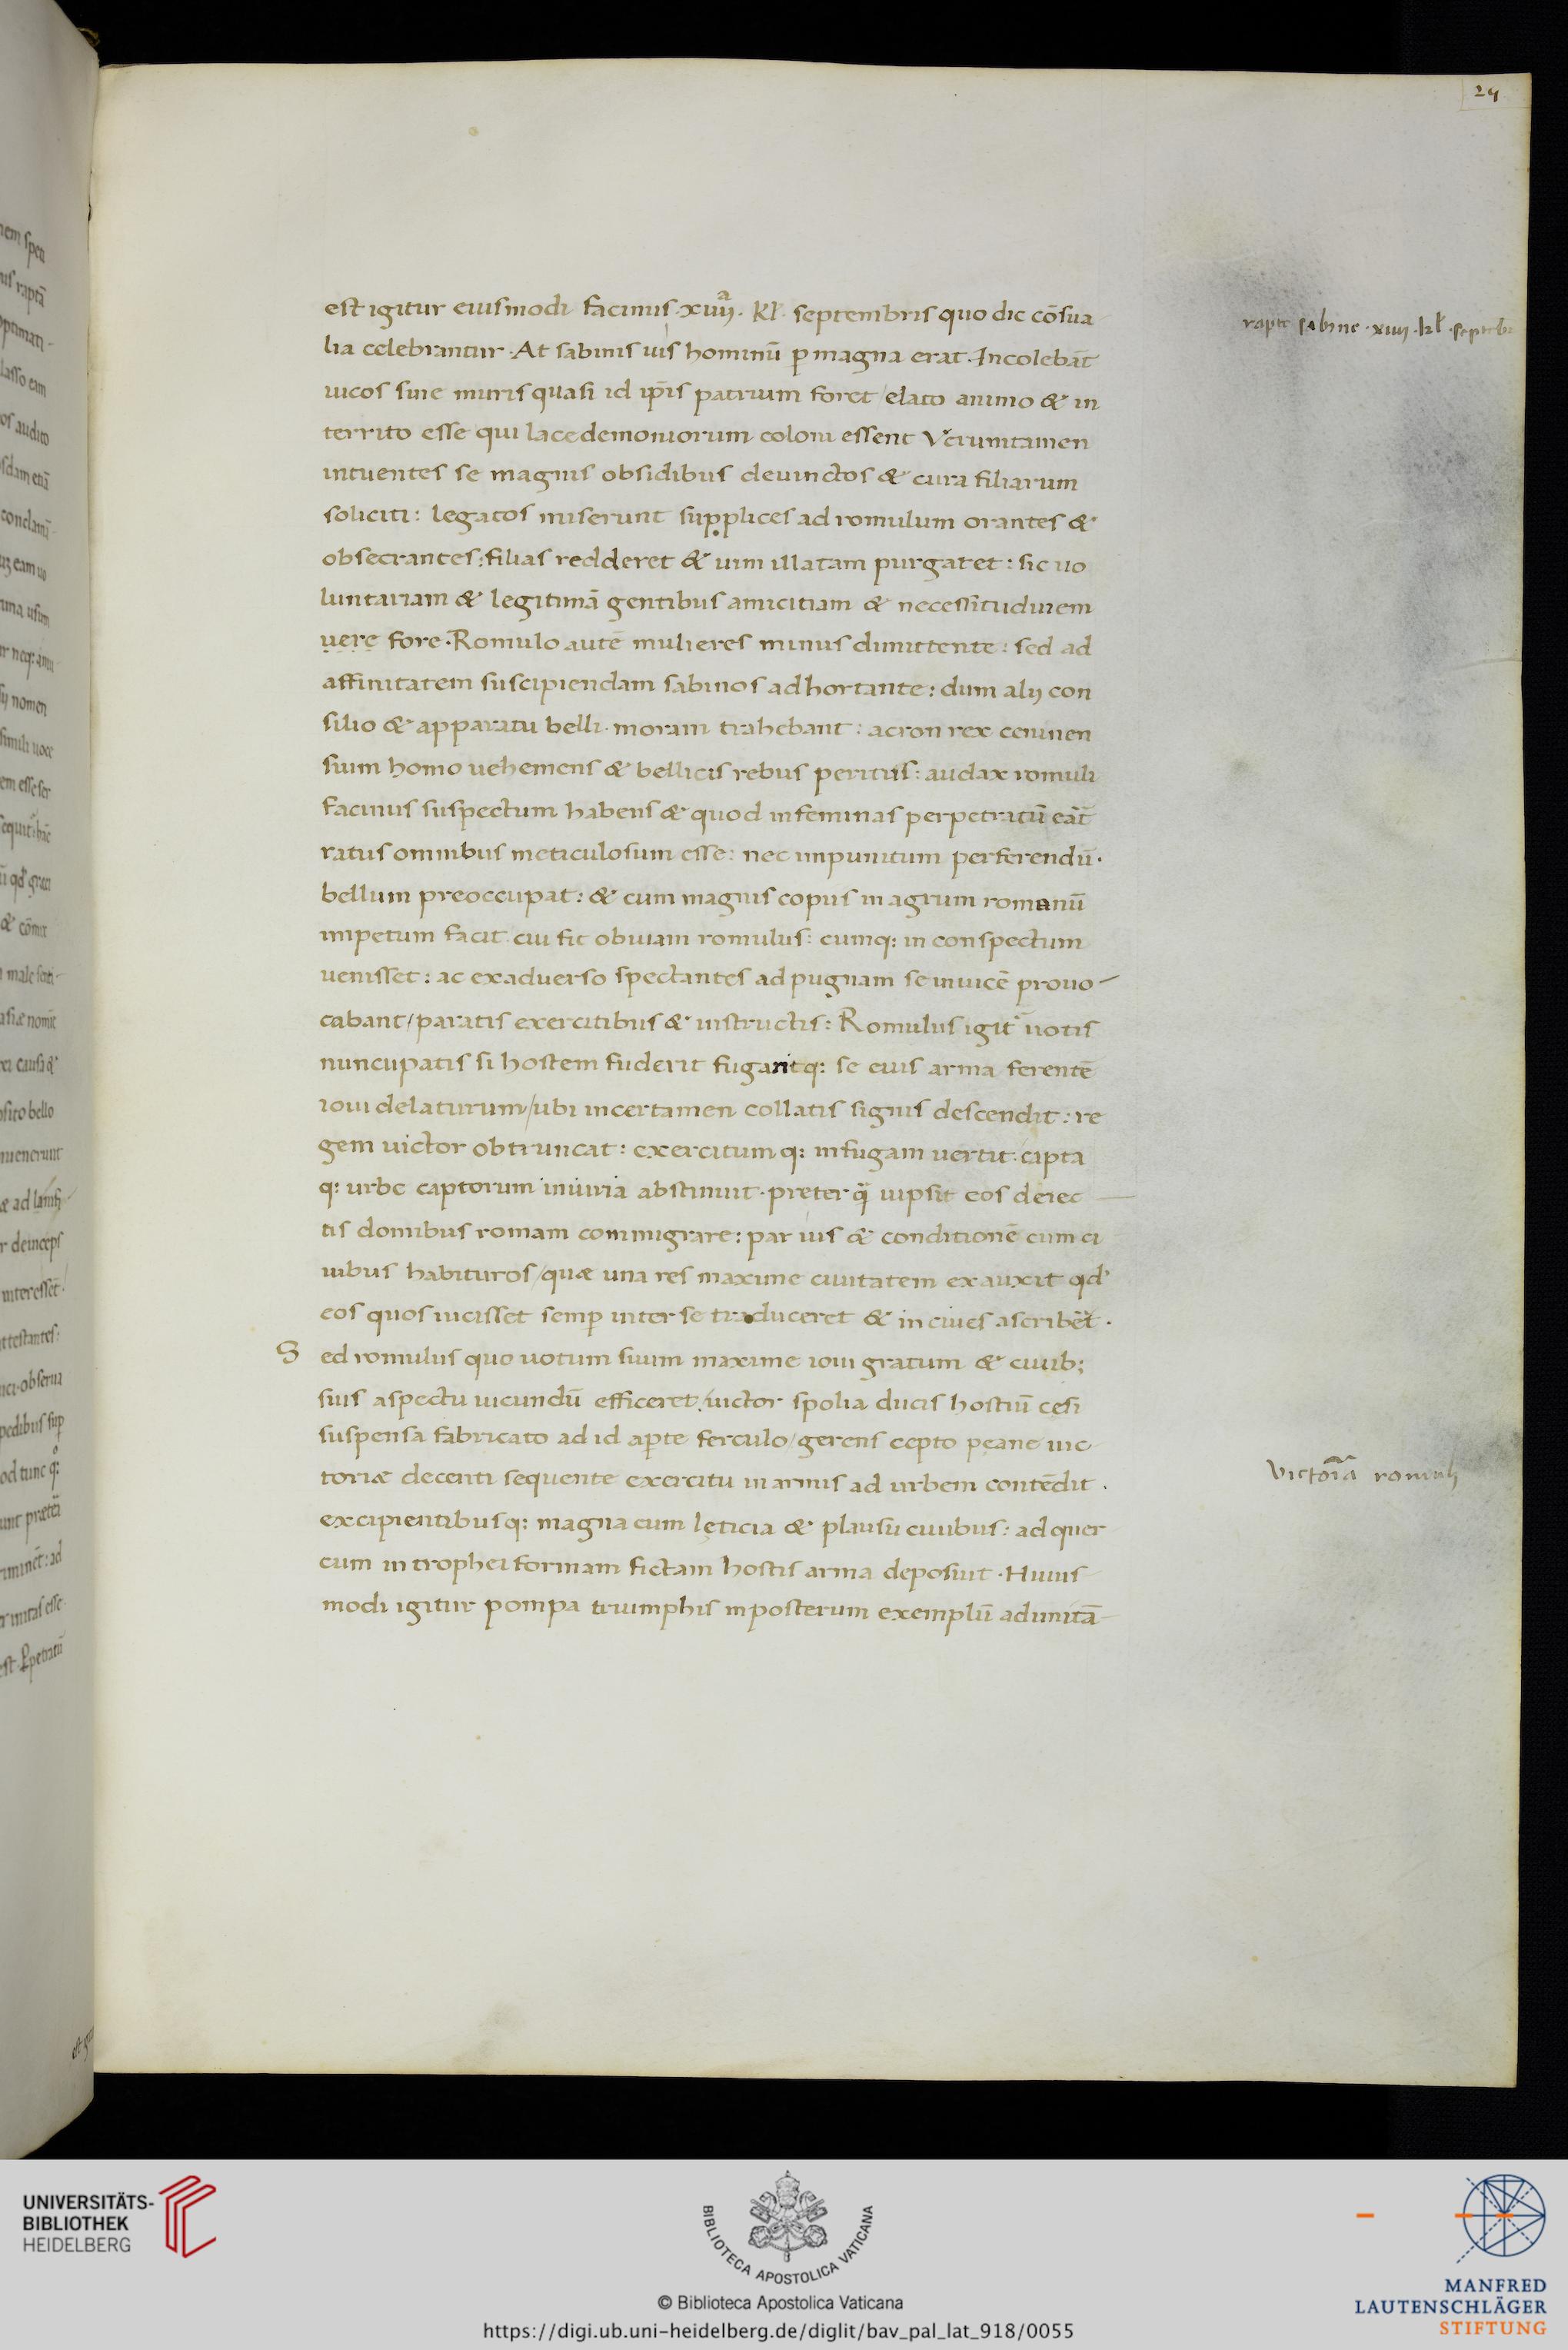 24
est igitur eiusmodi facinus · xiiii^a · kl̄ · septembris quo die cōsua
lia celebrantur · At sabinis uis hominū p̱ magna erat · Incolebāt
uicos sine muris quasi id ip̄is patrium foret / elato animo & in
territo esse qui lacedemoniorum coloni essent Verumtamen
intuentes se magnis obsidibus deuinctos & cura filiarum
soliciti : legatos miserunt supplices ad romulum orantes &
obsecrantes : filias redderet & uim illatam purgaret : sic uo
luntariam & legitimā gentibus amicitiam & necessitudinem
uere fore · Romulo autē mulieres minus dimittente : sed ad
affinitatem suscipiendam sabinos adhortante : dum alij con
silio & apparatu belli · moram trahebant : acron rex ceninen
sium homo uehemens & bellicis rebus peritus : audax romuli
facinus suspectum habens & quod in feminas perpetratū eāt
ratus omnibus meticulosum esse : nec impunitum perferendū ·
bellum preoccupat : & cum magnis copiis in agrum romanū
impetum facit · cui fit obuiam romulus : cumq: in conspectum
uenisset : ac exaduerso spectantes ad pugnam se inuicē prouo
cabant / paratis exercitibus & instructis : Romulus igit̄ uotis
nuncupatis si hostem fuderit fugaritq: se eius arma ferentē
ioui delaturum / ubi in certamen collatis signis descendit : re
gem uictor obtruncat : exercitumq: in fugam uertit · capta
q: urbe captorum iniuria abstinuit · preter q̄ iupsit eos deiec
tis domibus romam commigrare : par ius & conditionē cum ci
uibus habituros / quæ una res maxime ciuitatem exauxit qd'
eos quos uicisset semp̱ inter se traduceret & in ciues ascribēt ·
S ed romulus quo uotum suum maxime ioui gratum & ciuib;
suis aspectu iucundū efficeret / uictor spolia ducis hostiū cęsi
suspensa fabricato ad id apte ferculo / gerens cepto pęane uic
toriæ decenti sequente exercitu in armis ad urbem contēdit ·
excipientibusq: magna cum lęticia & plausu ciuibus : ad quer
cum in trophei formam fictam hostis arma deposuit · Huius
modi igitur pompa triumphis in posterum exemplū ad imitā
rapte sabine · xiiii · kl̄ · septēb
Victoria romuli
UNIVERSITÄTS-
BIBLIOTHEK
HEIDELBERG
BIBLIOTECA APOSTOLICA VATICANA
© Biblioteca Apostolica Vaticana
https://digi.ub.uni-heidelberg.de/diglit/bav_pal_lat_918/0055
MANFRED
LAUTENSCHLÄGER
STIFTUNG